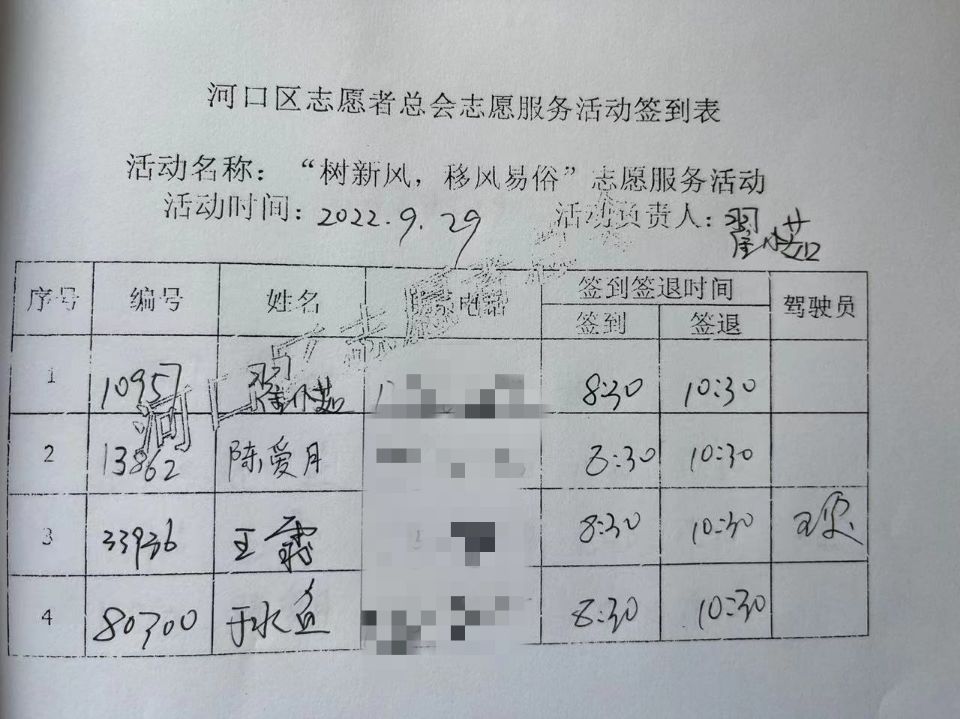 河口区志愿者总会志愿服务活动签到表
活动名称：“树新风，移风易俗”志愿服务活动
活动时间：2022.9.29 活动负责人：翟小茹
序号 编号 姓名 联系电话 签到签退时间 驾驶员
签到 签退
1 10957 翟小茹 8:30 10:30
2 13862 陈爱月 8:30 10:30
3 33936 王霞 8:30 10:30
4 80300 于水鱼 8:30 10:30
河口区志愿者总会